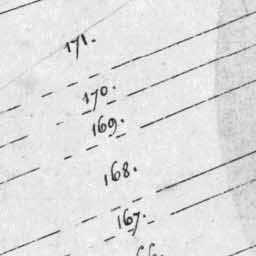 171.
170.
169.
168.
167.